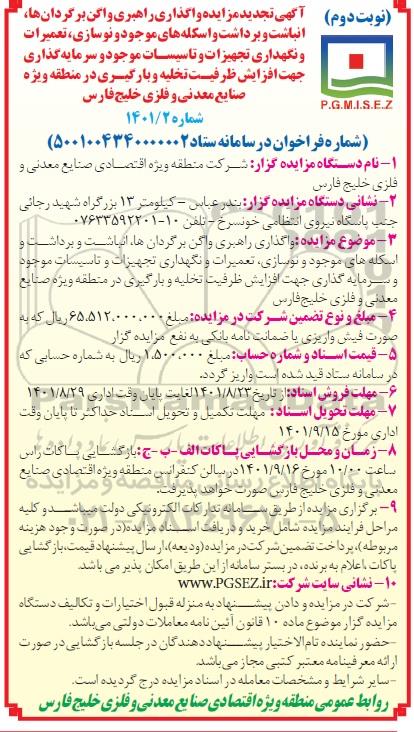 (نوبت دوم)
P.G.M.I.S.E.Z
آگهی تجدید مزایده واگذاری راهبری واگن برگردان‌ها،
انباشت و برداشت و اسکله‌های موجود و نوسازی، تعمیرات
و نگهداری تجهیزات و تاسیسات موجود و سرمایه گذاری
جهت افزایش ظرفیت تخلیه و بارگیری در منطقه ویژه
صنایع معدنی و فلزی خلیج فارس
شماره ۱۴۰۱/۲
(شماره فراخوان در سامانه ستاد ۵۰۰۱۰۰۴۳۴۰۰۰۰۰۰۲)
۱- نام دستگاه مزایده گزار: شرکت منطقه ویژه اقتصادی صنایع معدنی و
فلزی خلیج فارس
۲- نشانی دستگاه مزایده گزار: بندرعباس - کیلومتر ۱۳ بزرگراه شهید رجائی
جنب پاسگاه نیروی انتظامی خونسرخ - تلفن ۱۰-۰۷۶۳۳۵۹۲۲۰۱
۳- موضوع مزایده: واگذاری راهبری واگن برگردان ها، انباشت و برداشت و
اسکله های موجود و نوسازی، تعمیرات و نگهداری تجهیزات و تاسیسات موجود
و سرمایه گذاری جهت افزایش ظرفیت تخلیه و بارگیری در منطقه ویژه صنایع
معدنی و فلزی خلیج فارس
۴- مبلغ و نوع تضمین شرکت در مزایده: مبلغ ۶۵.۵۱۲.۰۰۰.۰۰۰ ریال که به
صورت فیش واریزی یا ضمانت نامه بانکی به نفع مزایده گزار
۵- قیمت اسناد و شماره حساب: مبلغ ۱.۵۰۰.۰۰۰ ریال به شماره حسابی که
در سامانه ستاد قید شده است واریز گردد.
۶- مهلت فروش اسناد: از تاریخ ۱۴۰۱/۸/۲۳ لغایت پایان وقت اداری ۱۴۰۱/۸/۲۹
۷- مهلت تحویل اسناد: مهلت تکمیل و تحویل اسناد حداکثر تا پایان وقت
اداری مورخ ۱۴۰۱/۹/۱۵
۸- زمان و محل بازگشایی پاکات الف - ب - ج: بازگشایی پاکات راس
ساعت ۱۰/۰۰ مورخ ۱۴۰۱/۹/۱۶ در سالن کنفرانس منطقه ویژه اقتصادی صنایع
معدنی و فلزی خلیج فارس صورت خواهد پذیرفت.
۹- برگزاری مزایده از طریق سامانه تدارکات الکترونیکی دولت میباشد و کلیه
مراحل فرایند مزایده شامل خرید و دریافت اسناد مزایده (در صورت وجود هزینه
مربوطه)، پرداخت تضمین شرکت در مزایده (ودیعه)، ارسال پیشنهاد قیمت، بازگشایی
پاکات، اعلام به برنده، در بستر سامانه از این طریق امکان پذیر می باشد.
۱۰- نشانی سایت شرکت: www.PGSEZ.ir
-شرکت در مزایده و دادن پیشنهاد به منزله قبول اختیارات و تکالیف دستگاه
مزایده گزار موضوع ماده ۱۰ قانون آئین نامه معاملات دولتی می‌باشد.
-حضور نماینده تام الاختیار پیشنهاددهندگان در جلسه بازگشایی در صورت
ارائه معرفینامه معتبر کتبی مجاز می‌باشد.
-سایر شرایط و مشخصات معامله در اسناد مزایده درج گردیده است.
روابط عمومی منطقه ویژه اقتصادی صنایع معدنی و فلزی خلیج فارس